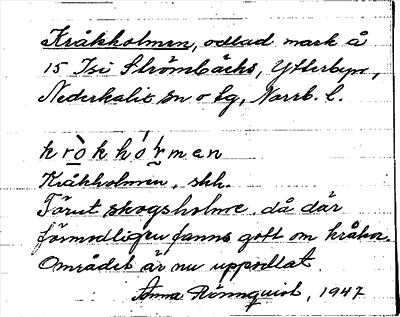 Kråkholmen, odlad mark å
15 Isi Strömbäcks, Ytterbyn,
Nederkalix sn o lg, Norrb. l.
kròkhór̀men
Kråkholmen, shh.
Förut skogsholme, då där
förmodligen fanns gott om kråkor.
Området är nu uppodlat
Anna Rönnquist, 1947